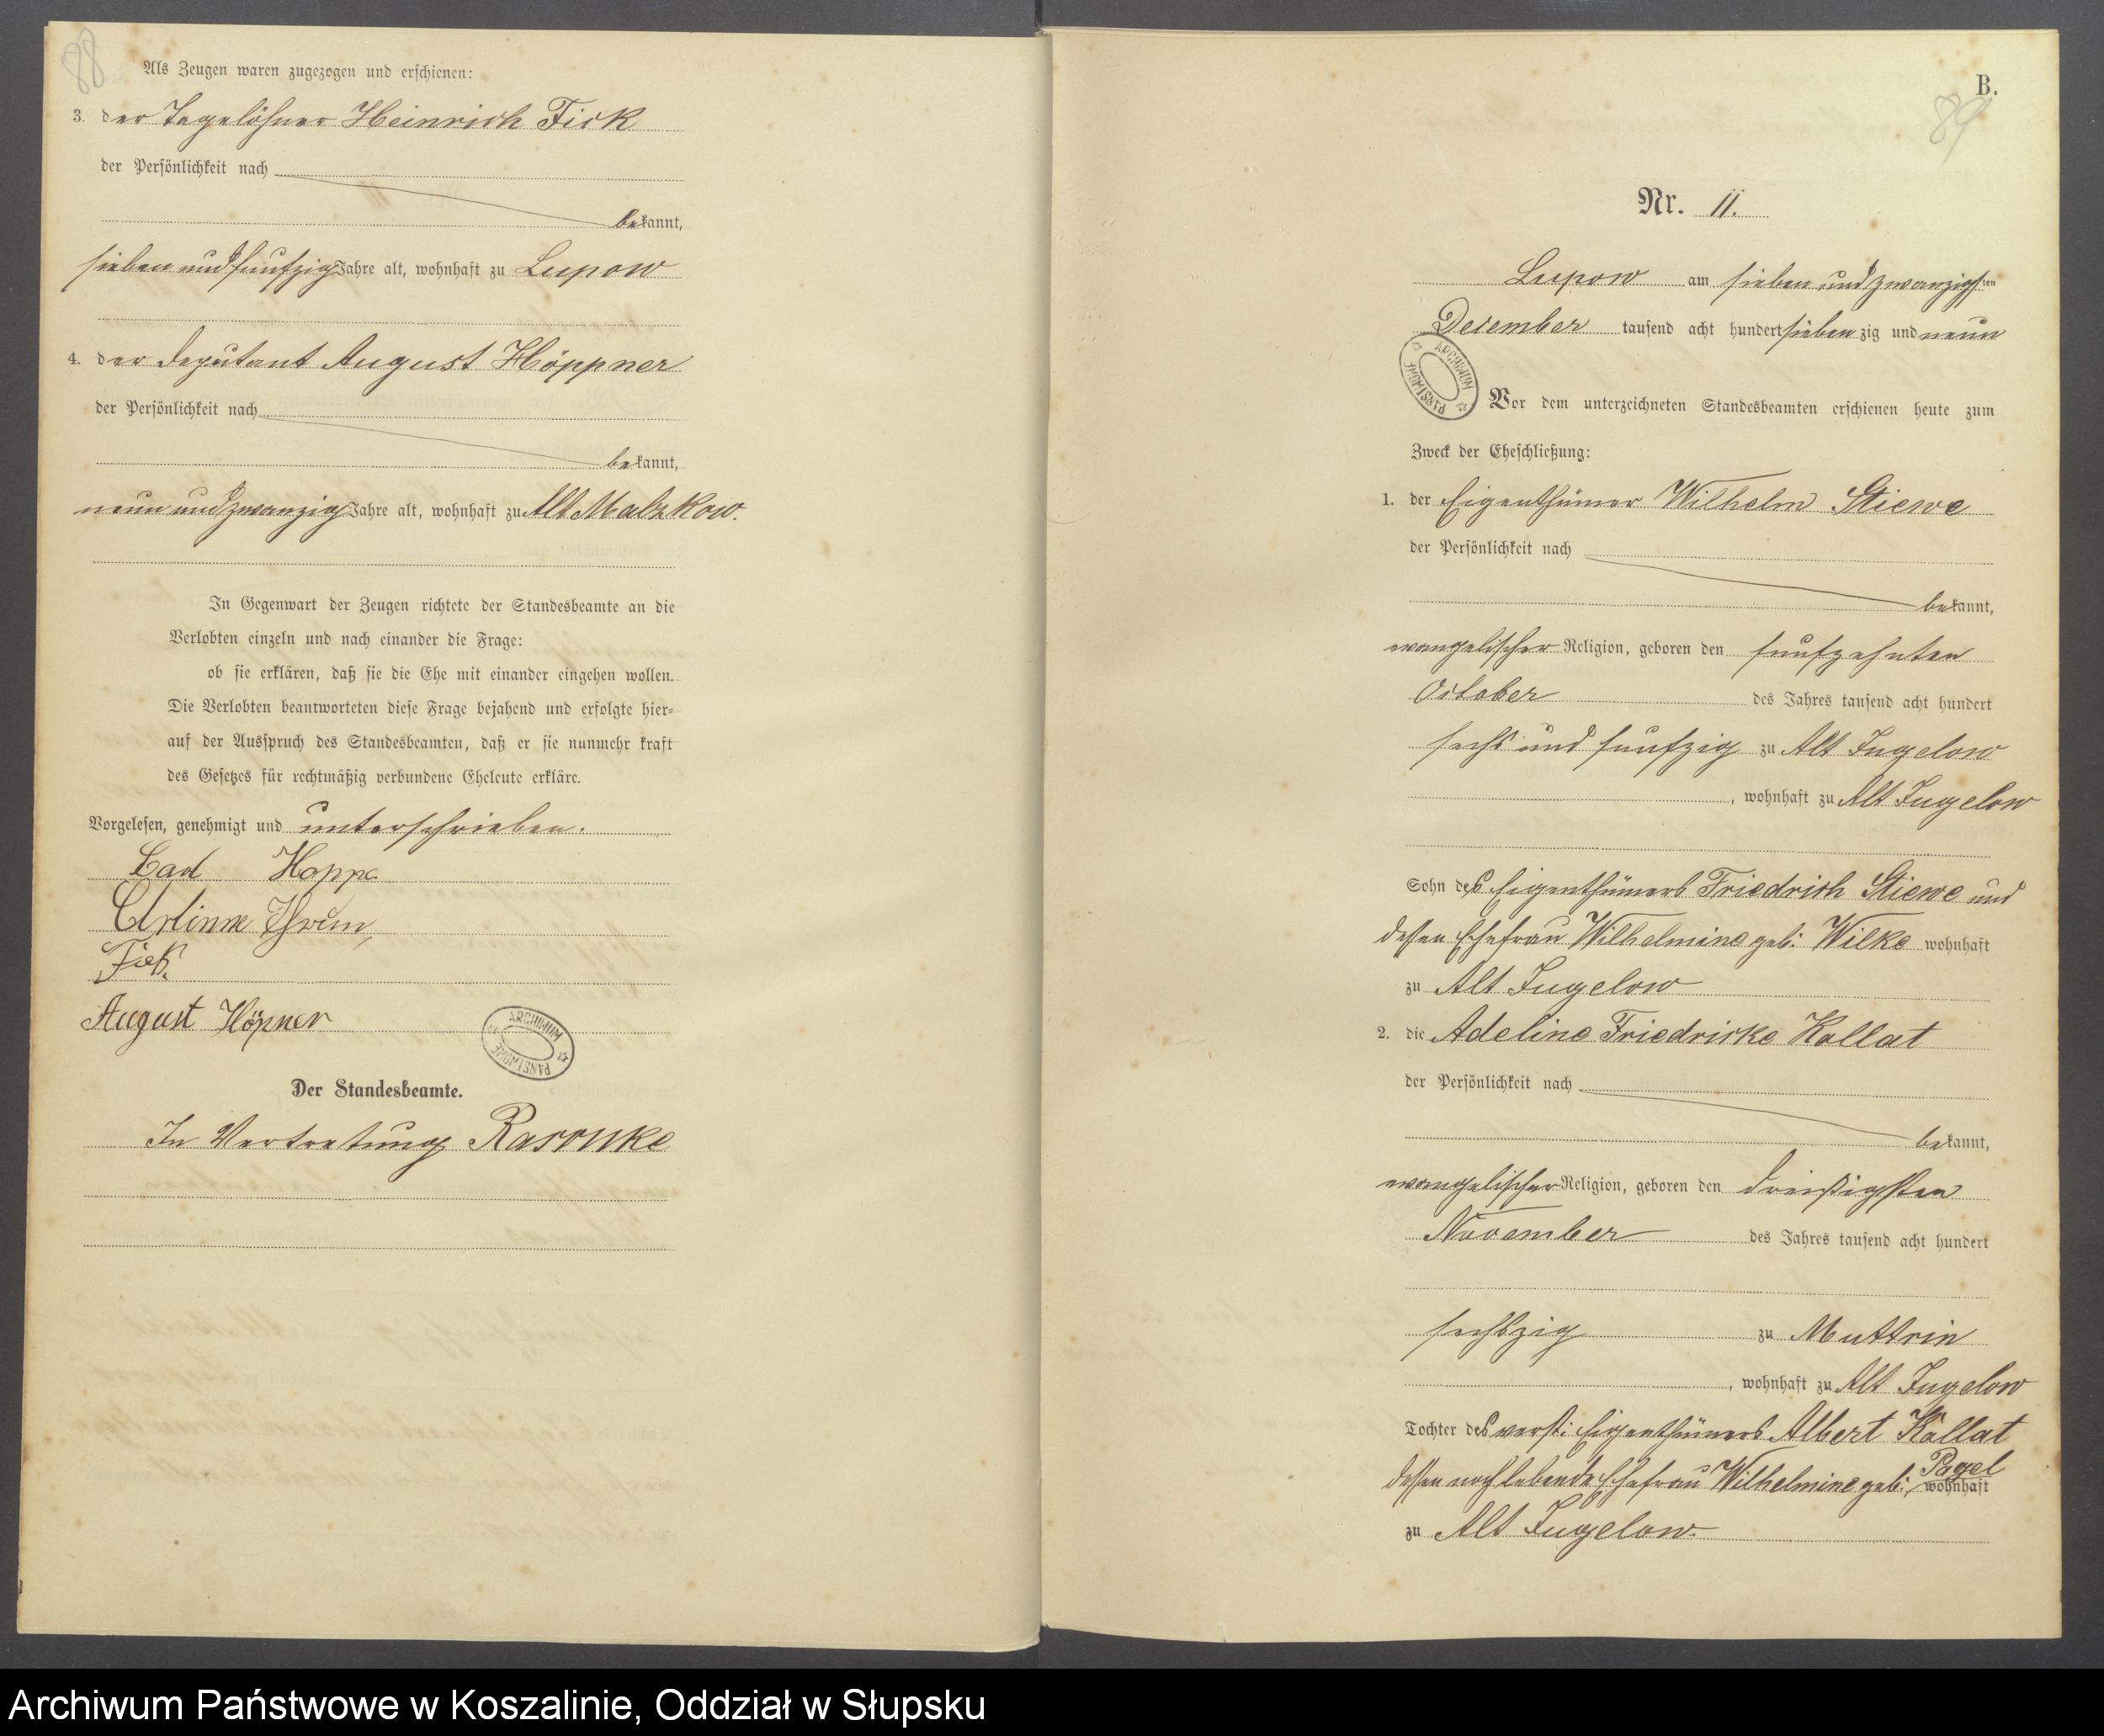 88
Als Zeugen waren zugezogen und erschienen:
3. der Tagelöhner Heinrich Fick
der Persönlichkeit nach
bekannt,
sieben und funfzig Jahre alt, wohnhaft zu Lupow
4. der Deputant August Höppner
der Persönlichkeit nach
bekannt,
neun und zwanzig Jahre alt, wohnhaft zu Alt Malzkow.
In Gegenwart der Zeugen richtete der Standesbeamte an die
Verlobten einzeln und nach einander die Frage:
ob sie erklären, daß sie die Ehe mit einander eingehen wollen.
Die Verlobten beantworteten diese Frage bejahend und erfolgte hier-
auf der Ausspruch des Standesbeamten, daß er sie nunmehr kraft
des Gesetzes für rechtmäßig verbundene Eheleute erkläre.
Vorgelesen, genehmigt und unterschrieben.
Carl Hoppe
Fick.
August Höpner
ARCHIWUM PAŃSTWOWE
Der Standesbeamte.
In Vertretung
B.
89
Nr. 11.
Lupow am sieben und zwanzigsten
December tausend acht hundert sieben zig und neun
ARCHIWUM PAŃSTWOWE
Vor dem unterzeichneten Standesbeamten erschienen heute zum
Zweck der Eheschließung:
1. der Eigenthümer Wilhelm Stiewe
der Persönlichkeit nach
bekannt,
evangelischer Religion, geboren den funfzehnten
October des Jahres tausend acht hundert
sechs und funfzig zu Alt Jugelow
, wohnhaft zu Alt Jugelow
Sohn des Eigenthümers Friedrich Stiewe und
dessen Ehefrau Wilhelmine geb: Wilke wohnhaft
zu Alt Jugelow
2. die Adeline Friedricke Kollat
der Persönlichkeit nach
bekannt,
evangelischer Religion, geboren den dreißigsten
November des Jahres tausend acht hundert
sechszig zu Muttrin
, wohnhaft zu Alt Jugelow
Tochter des verst: Eigenthümers Albert Kollat
dessen noch lebende Ehefrau Wilhelmine geb: Pagel wohnhaft
zu Alt Jugelow.
Archiwum Państwowe w Koszalinie, Oddział w Słupsku